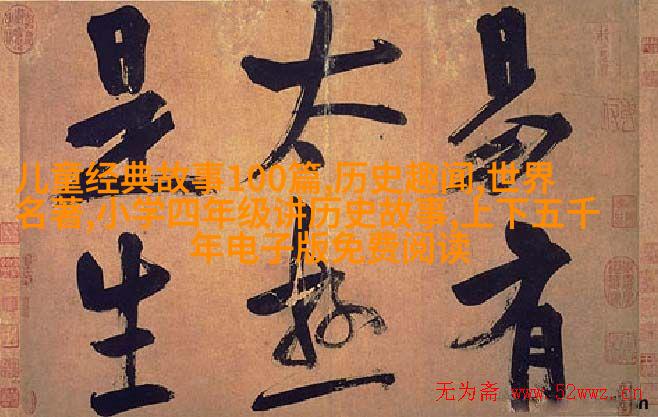 易有
太極
是生
儿童经典故事100篇,历史趣闻,世界
名著,小学四年级讲历史故事,上下五千
年电子版免费阅读
无为斋 www.52wwz.cn